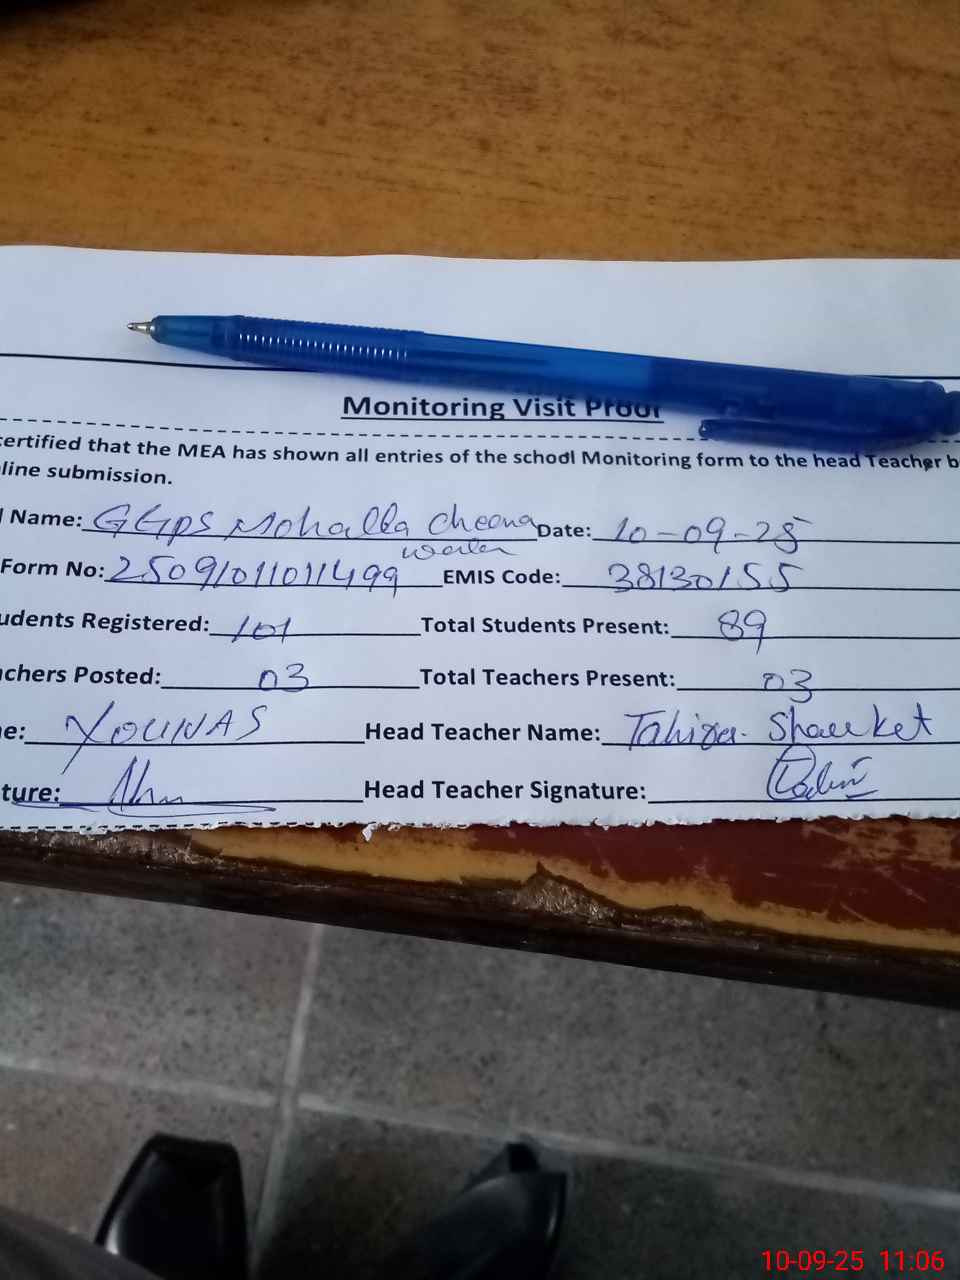 Monitoring Visit Proof
certified that the MEA has shown all entries of the school Monitoring form to the head Teacher b
line submission.
l Name: GGPS Mohalla Cheena Date: 10-09-25
Form No: 25091011011499 EMIS Code: 38130155
udents Registered: 101 Total Students Present: 89
achers Posted: 03 Total Teachers Present: 03
e: YOUNAS Head Teacher Name: Tahira Shauket
ture: Head Teacher Signature:
10-09-25 11:06